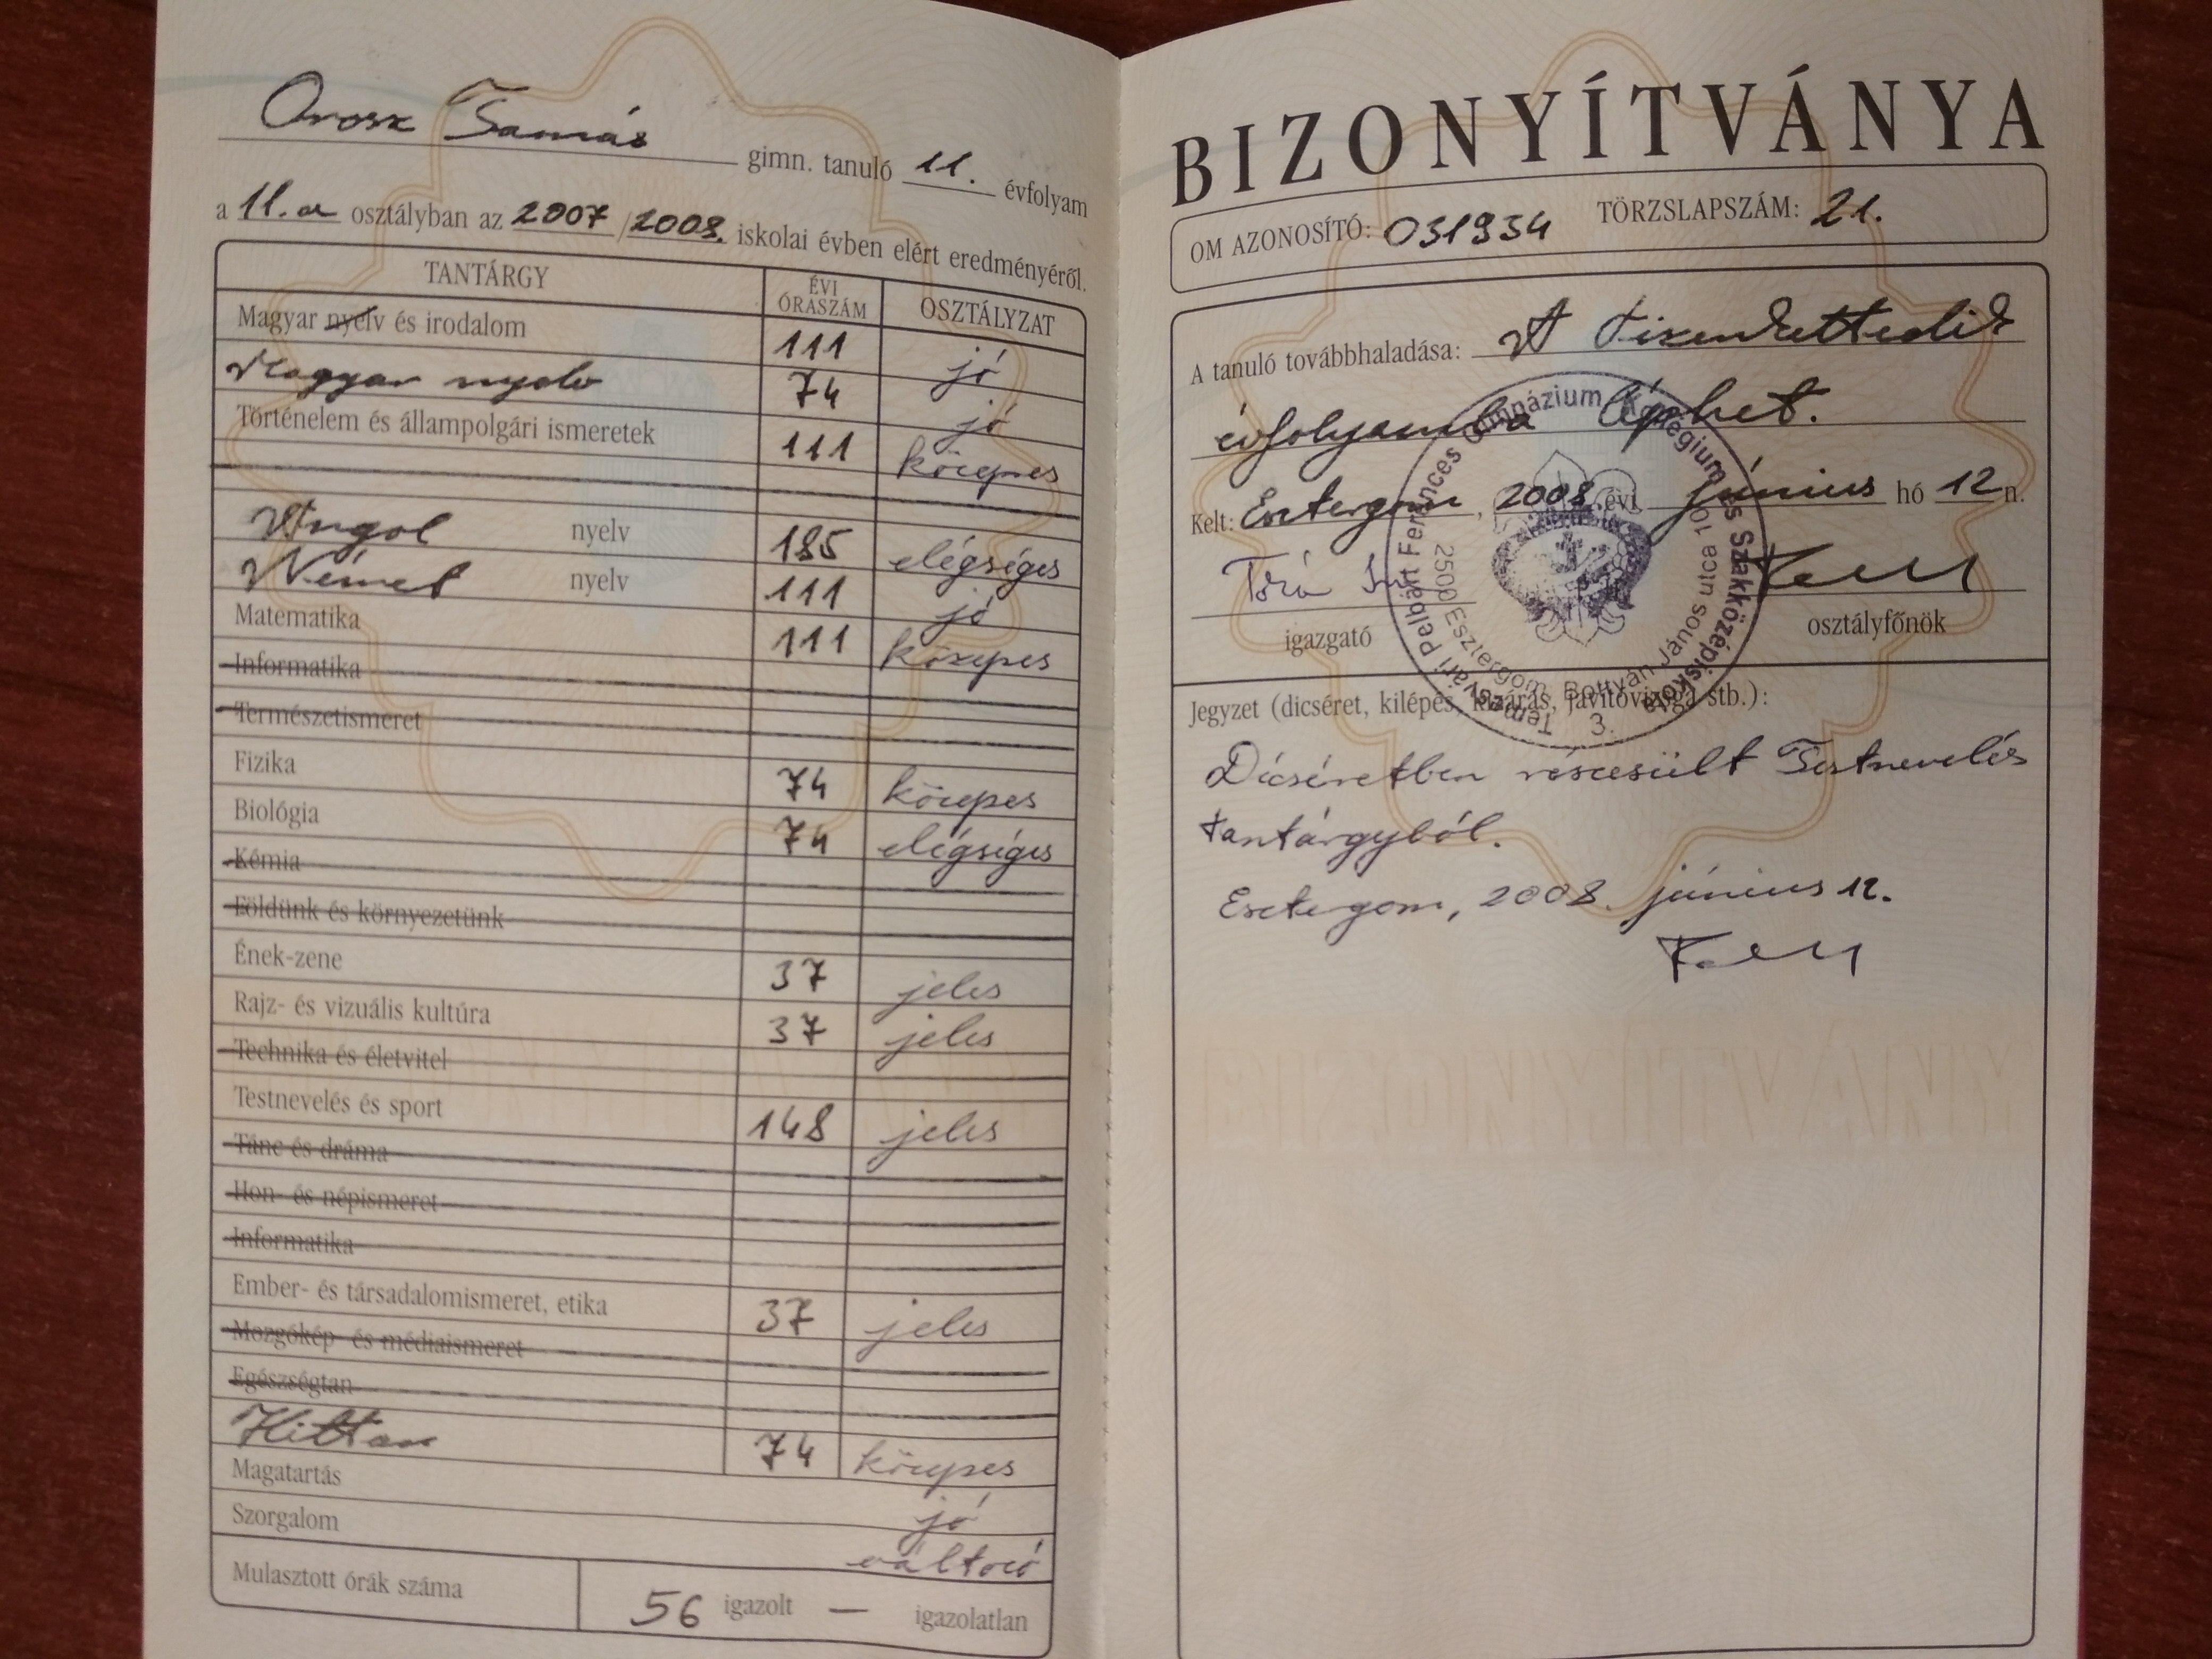 Orosz Tamás gimn. tanuló 11. évfolyam
a 11.a osztályban az 2007/2008. iskolai évben elért eredményéről.
TANTÁRGY ÉVI ÓRASZÁM OSZTÁLYZAT
Magyar nyelv és irodalom 111 jó
Magyar nyelv 74 jó
Történelem és állampolgári ismeretek 111 közepes
Angol nyelv 185 elégséges
Német nyelv 111 jó
Matematika 111 közepes
Informatika
Természetismeret
Fizika 74 közepes
Biológia 74 elégséges
Kémia
Földünk és környezetünk
Ének-zene 37 jeles
Rajz- és vizuális kultúra 37 jeles
Technika és életvitel
Testnevelés és sport 148 jeles
Tánc és dráma
Hon- és népismeret
Informatika
Ember- és társadalomismeret, etika 37 jeles
Mozgókép- és médiaismeret
Egészségtan
Hittan 74 közepes
Magatartás jó
Szorgalom változó
Mulasztott órák száma 56 igazolt — igazolatlan
BIZONYÍTVÁNYA
OM AZONOSÍTÓ: 031934 TÖRZSLAPSZÁM: 21.
A tanuló továbbhaladása: A tizenkettedik
évfolyamba léphet.
Kelt: Esztergom, 2008. évi június hó 12 n.
igazgató osztályfőnök
Temesvári Pelbárt Ferences Gimnázium Kollégium és Szakközépiskola
2500 Esztergom, Bottyán János utca 10.
3.
Jegyzet (dicséret, kilépés, kizárás, javítóvizsga stb.):
Dícséretben részesült Testnevelés
tantárgyból.
Esztergom, 2008. június 12.